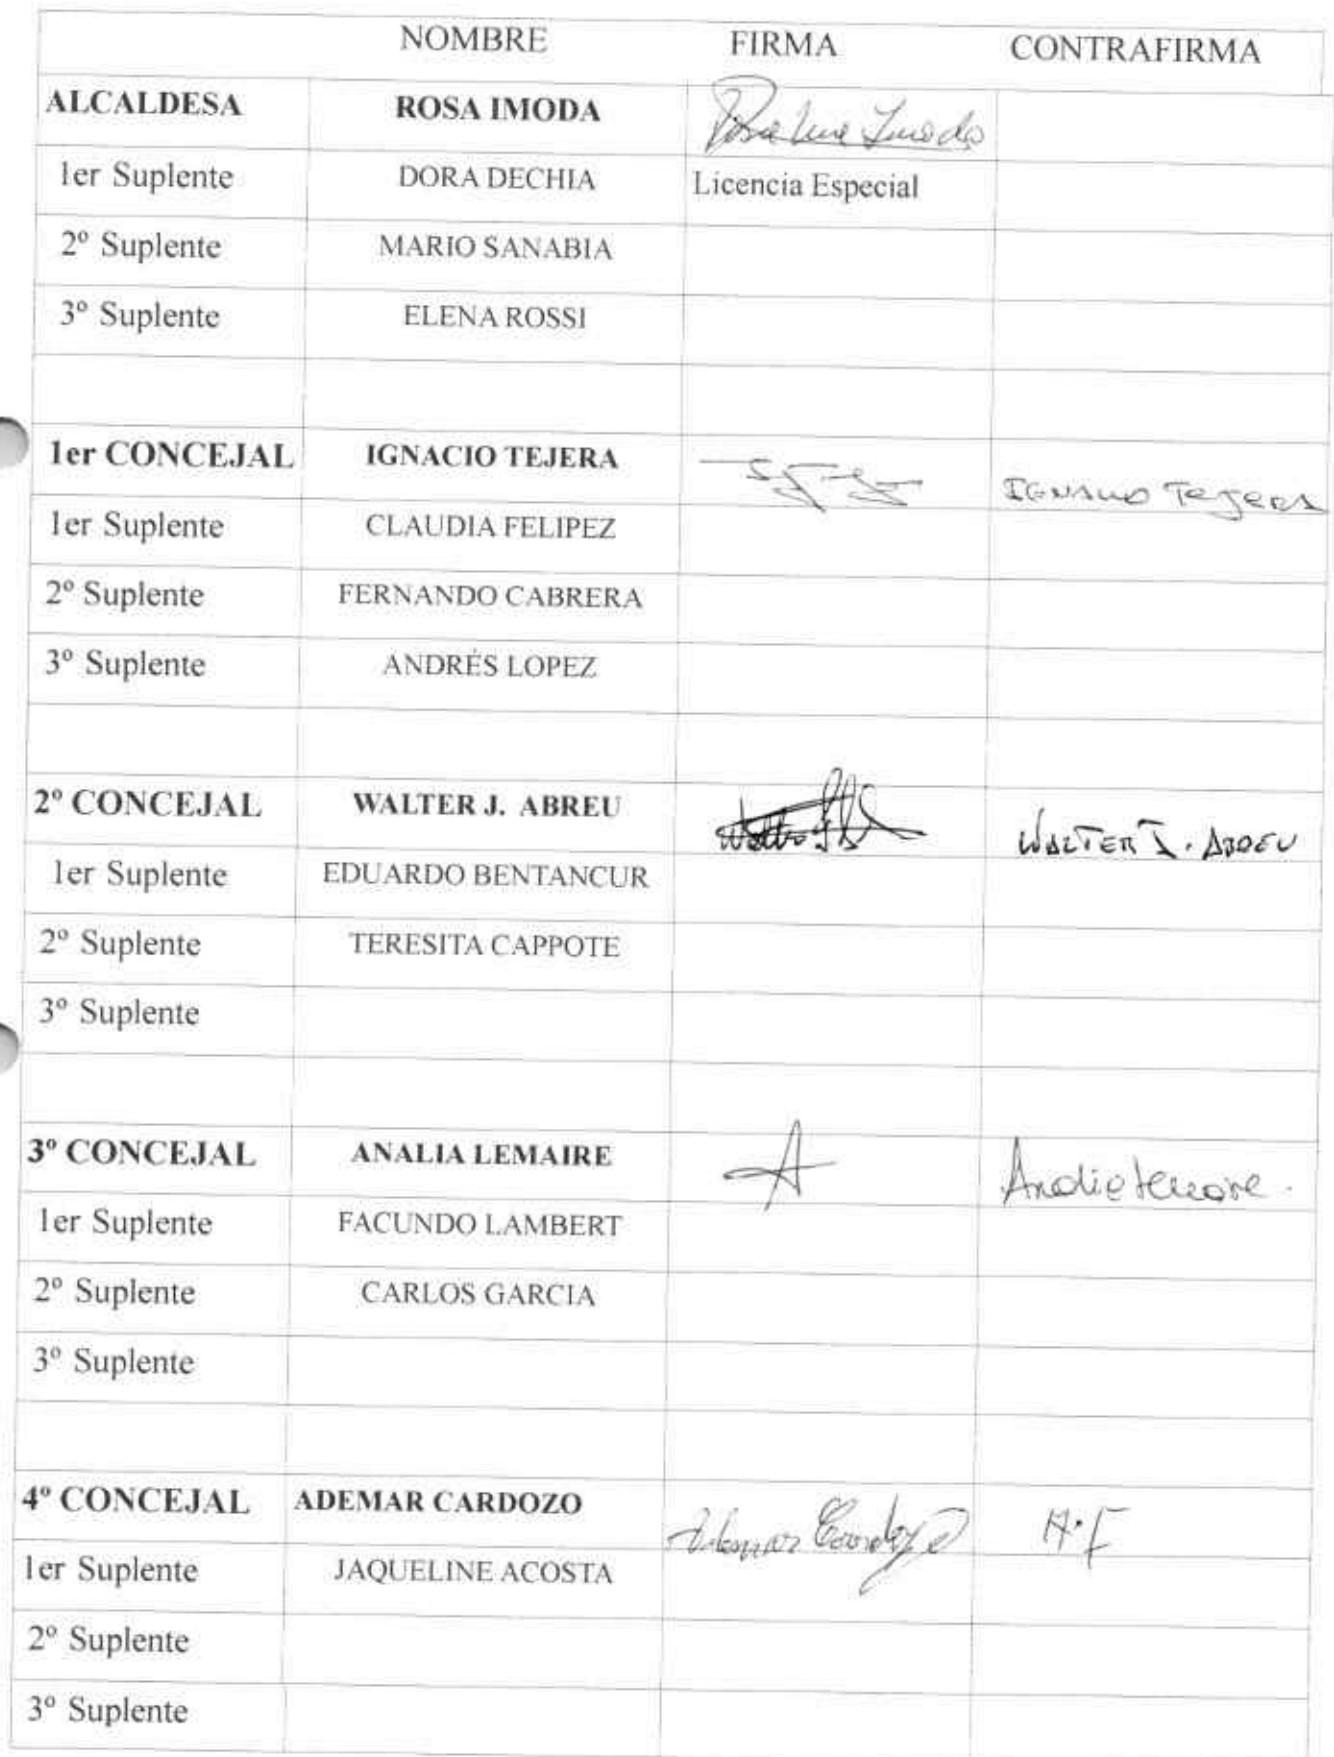 NOMBRE FIRMA CONTRAFIRMA
ALCALDESA ROSA IMODA
1er Suplente DORA DECHIA Licencia Especial
2º Suplente MARIO SANABIA
3º Suplente ELENA ROSSI
1er CONCEJAL IGNACIO TEJERA IGNACIO TEJERA
1er Suplente CLAUDIA FELIPEZ
2º Suplente FERNANDO CABRERA
3º Suplente ANDRÉS LOPEZ
2º CONCEJAL WALTER J. ABREU WALTER J. ABREU
1er Suplente EDUARDO BENTANCUR
2º Suplente TERESITA CAPPOTE
3º Suplente
3º CONCEJAL ANALIA LEMAIRE A
1er Suplente FACUNDO LAMBERT
2º Suplente CARLOS GARCIA
3º Suplente
4º CONCEJAL ADEMAR CARDOZO Ademar Cardozo
1er Suplente JAQUELINE ACOSTA
2º Suplente
3º Suplente